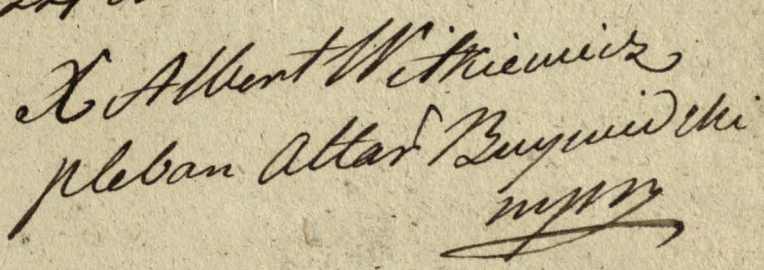 X Albert Witkiewicz
pleban Altar Buywidzki
mppa